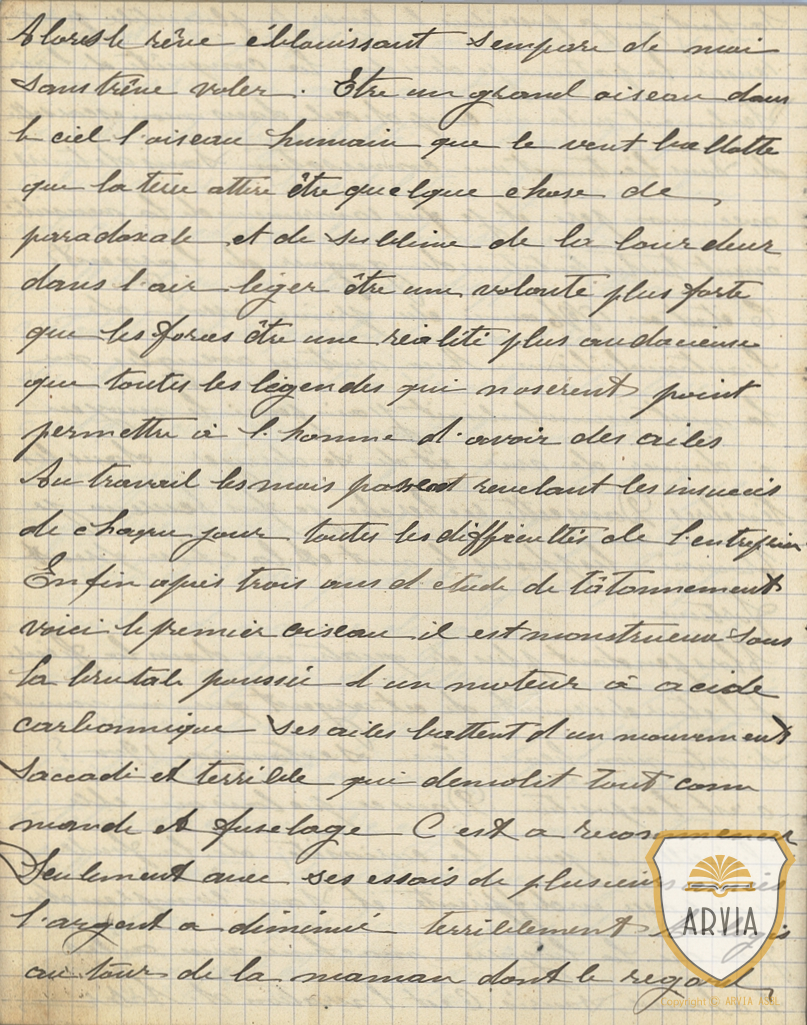 Alors le rêve éblouissant s'empare de moi
sans trêve voler. Etre un grand oiseau dans
le ciel l'oiseau humain que le vent ballotte
que la terre attire être quelque chose de
paradoxale et de sublime de la lourdeur
dans l'air léger être une volonté plus forte
que les forces être une réalité plus audacieuse
que toutes les légendes qui nosèrent point
permettre à l'homme d'avoir des ailes
Au travail les mois passent revelant les insuccès
de chaque jour toutes les difficultés de l'entreprise
Enfin après trois ans d'etude de tâtonnements
voici le premier oiseau il est monstrueux sous
la brutale poussée d'un moteur à acide
carbonnique ses ailes battent d'un mouvement
saccadé et terrible qui demolit tout comm
mande et fuselage C'est a recommencer
Seulement avec ses essais de plusieurs années
l'argent a diminué terriblement
au tour de la maman dont le regard
ARVIA
Copyright © ARVIA ASBL